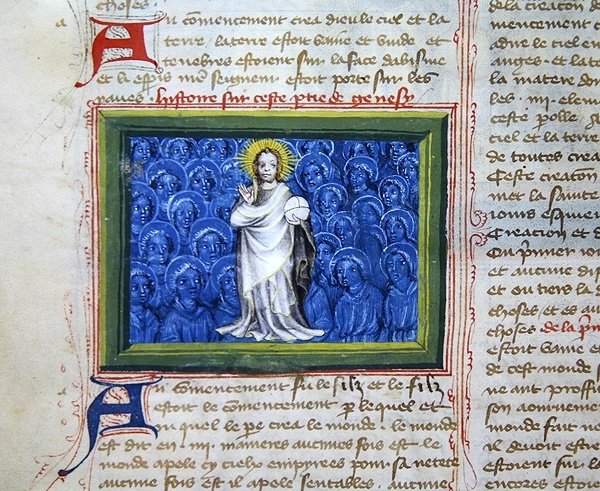 choses.
Au comencement crea dieu le ciel et la
terre, la terre estoit vaine et vuide et
tenebres estoient sur la face dabisme
et li esperis nre seigneur estoit porte sur les
yaues. histoire sur ceste ptie de genesy
Au comencement fu le filz et le filz
estoit le comencement p le quel et
ou quel le pe crea le monde. le monde
est dit en .iiii. manieres aucunes fois est le
monde apele cy cielx empyrees pour sa netete
aucune fois est il apele sentables. aucune
de la creaton de
mencement
adire le ciel en
anges. et la te
la matere don
les .iiii. elemen
ceste polle
ciel et la terre
de toutes crea
Ceste creaton
met la sainte
iours esquieu
Creacion et d
Ou pmier io
et aucune dis
et ou tiers la d
choses, et es au
choses de la pm
estoit vaine et
de ceste monde
ne ant proffit
son aournemen
monde fait ne
il devoit estre
estoient sur la
encores estoient